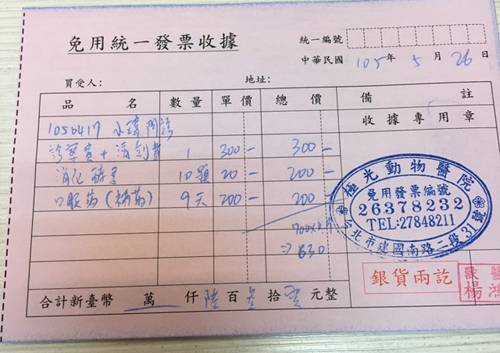 免用統一發票收據
統一編號
中華民國 105 年 5 月 26 日
買受人： 地址：
品 名 數量 單價 總價 備 註
收據專用章
1050417
診察費+ 1 300- 300-
消化酵素 10顆 20- 200-
口服藥 9天 200- 200-
700x0.9
⇒ 630
極光動物醫院
免用發票編號
26378232
TEL:27848211
台北市建國南路二段31號
銀貨兩訖
獸醫
楊鴻
合計新臺幣 萬 仟 陸 百 叁 拾 零 元整